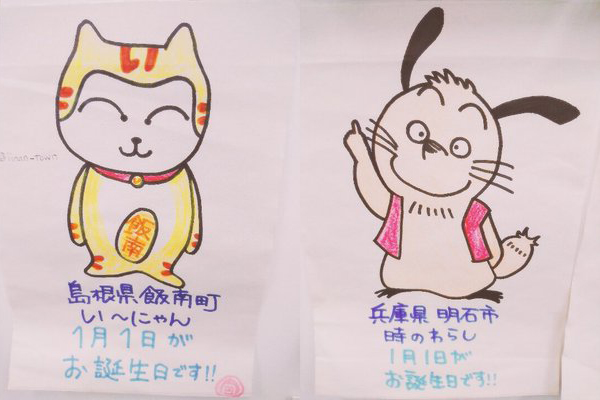 い
飯南
島根県飯南町
い〜にゃん
1月1日が
お誕生日です!!
兵庫県明石市
時のわらし
1月1日が
お誕生日です!!